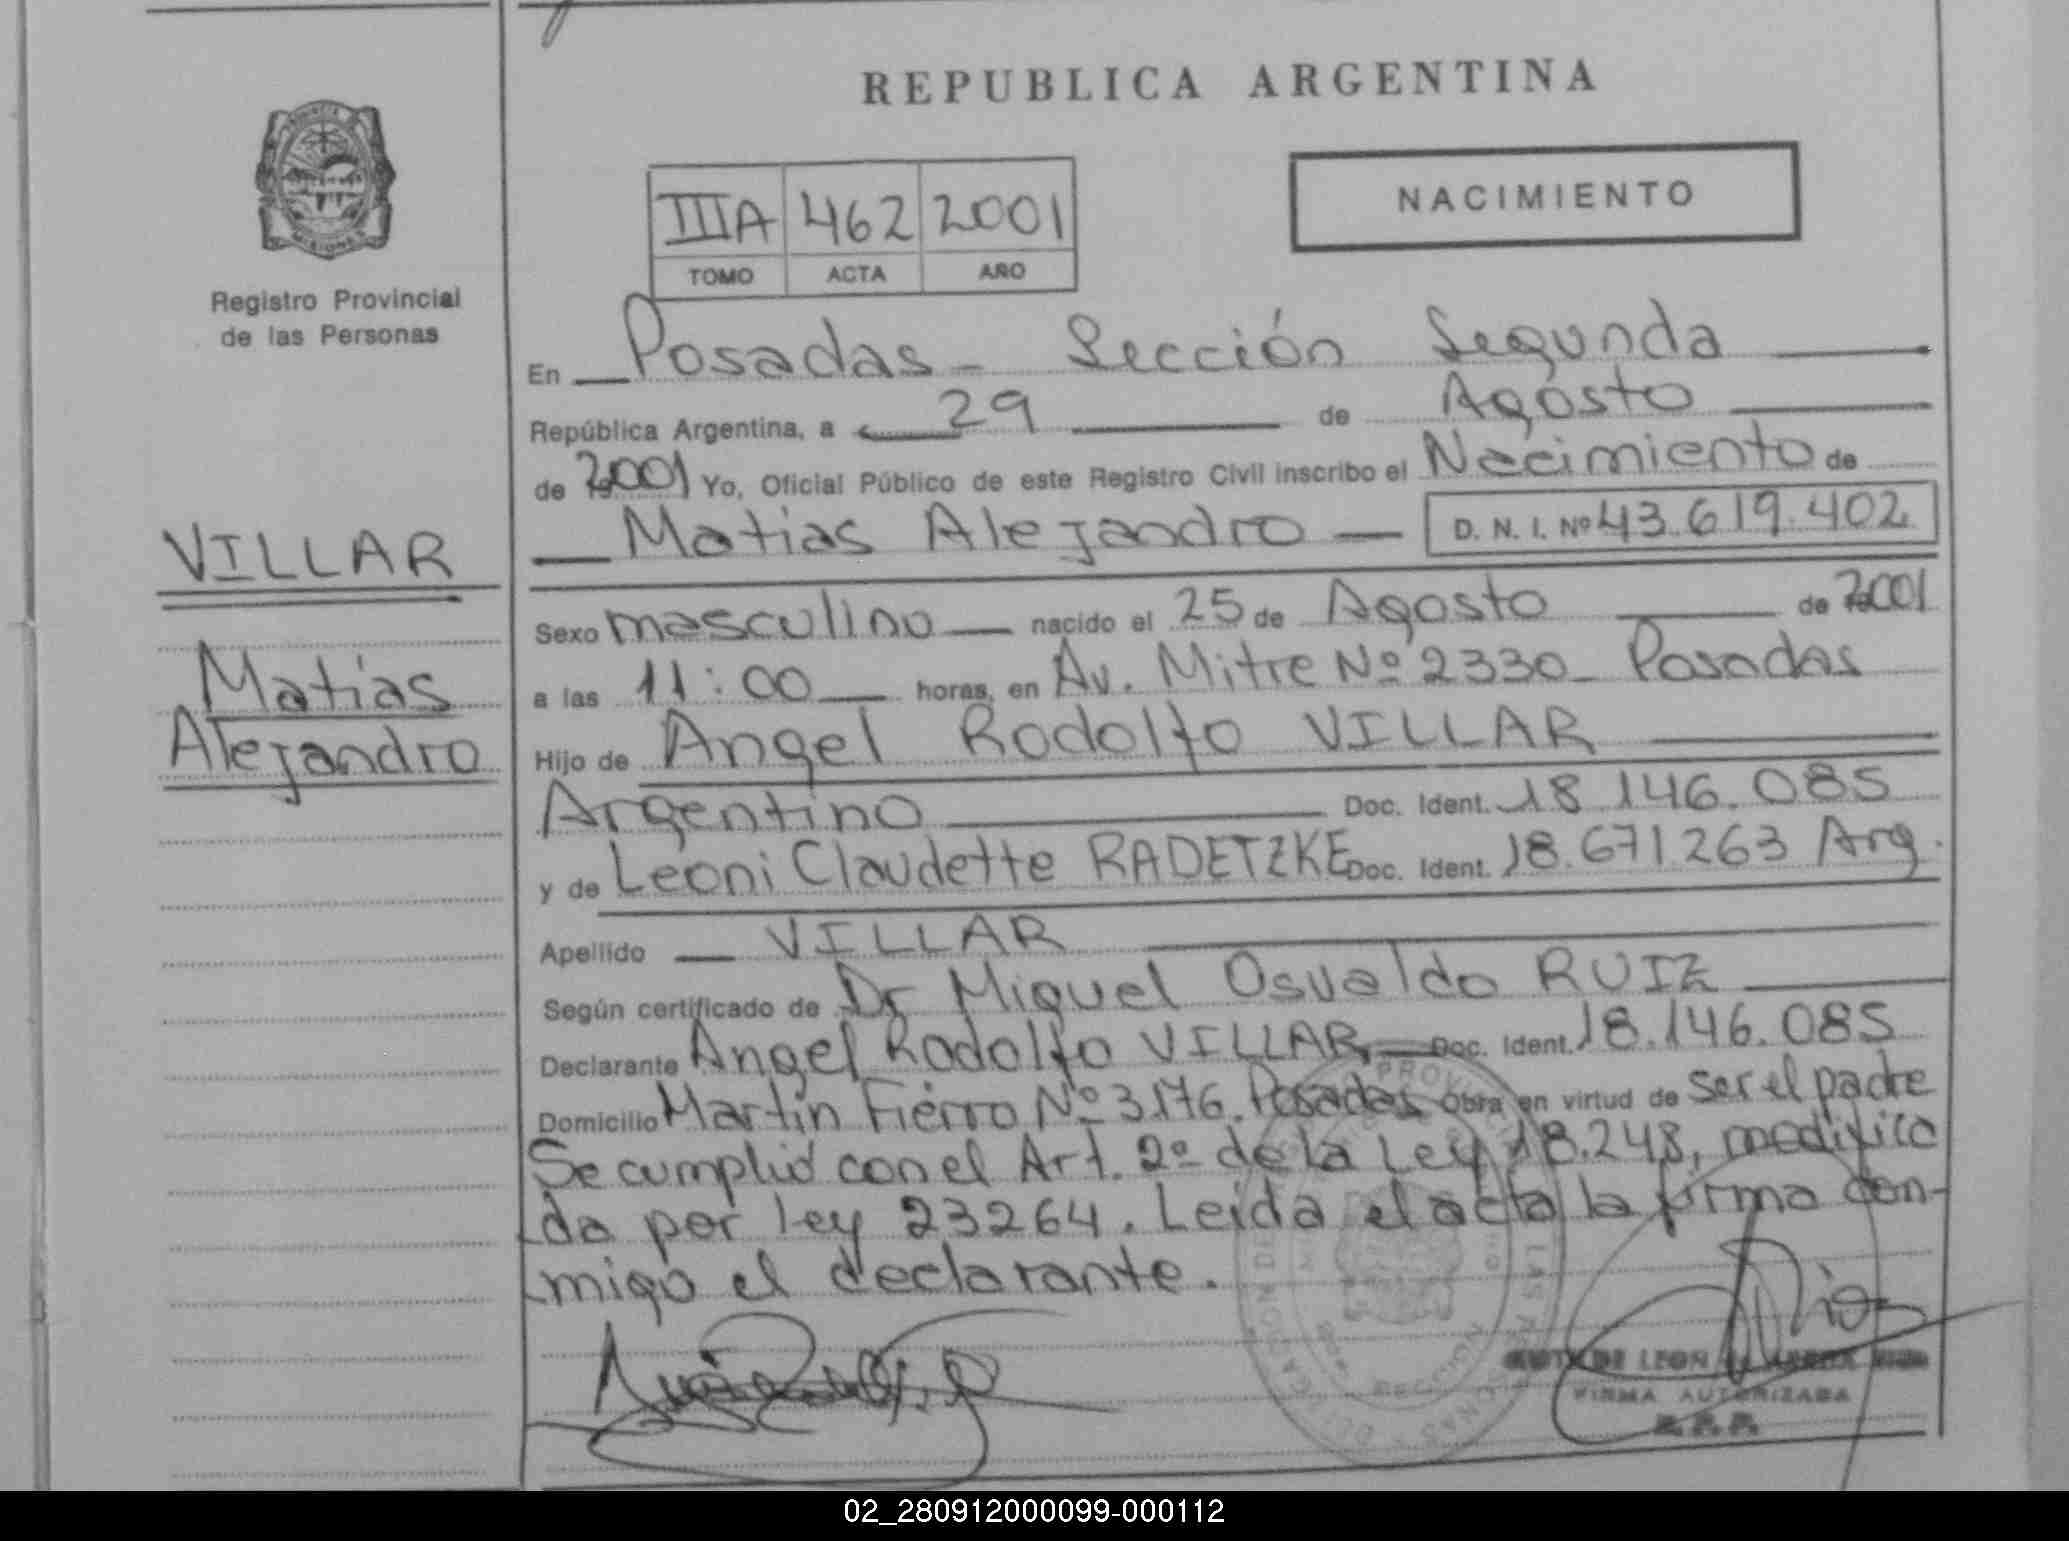 REPUBLICA ARGENTINA
NACIMIENTO
IIIA 462 2001
TOMO ACTA AÑO
PROVINCIA DE
MISIONES
Registro Provincial
de las Personas
VILLAR
Matias
Alejandro
En Posadas - Sección Segunda
República Argentina, a 29 de Agosto
de 2001 Yo, Oficial Público de este Registro Civil inscribo el Nacimiento de
Matias Alejandro D. N. I. Nº 43.619.402
Sexo masculino nacido el 25 de Agosto de 2001
a las 11:00 horas, en Av. Mitre Nº 2330 - Posadas
Hijo de Angel Rodolfo VILLAR
Argentino Doc. Ident. 18.146.085
y de Leoni Claudette RADETZKE Doc. Ident. 18.671.263 Arg.
Apellido VILLAR
Según certificado de Dr Miguel Osvaldo RUIZ
Declarante Angel Rodolfo VILLAR Doc. Ident. 18.146.085
Domicilio Martin Fierro Nº 3176. Posadas Obra en virtud de ser el padre
Se cumplió con el Art. 2º de la Ley 18.248, modifica
da por ley 23264. Leida el acta la firma con-
migo el declarante.
DE LEON
FIRMA AUTORIZADA
02_280912000099-000112